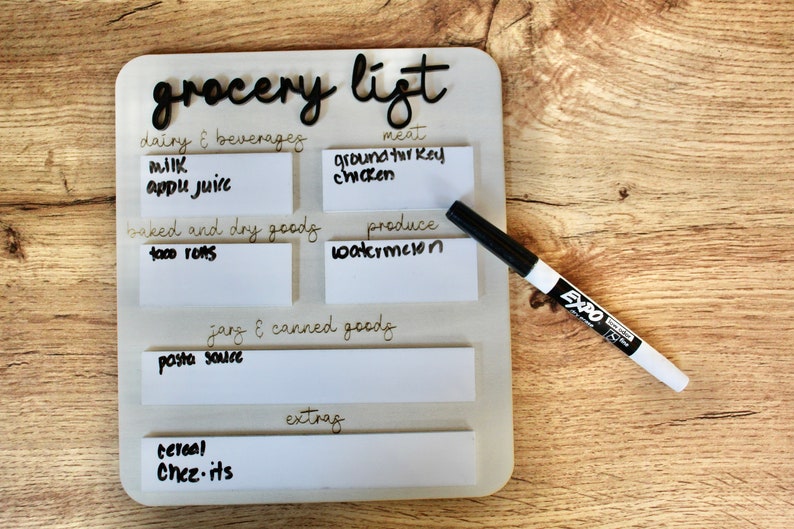 grocery list
dairy & beverages
meat
milk
apple juice
ground turkey
chicken
baked and dry goods
produce
taco rolls
watermelon
jars & canned goods
pasta sauce
extras
cereal
Chez-its
EXPO
dry erase
low odor
fine